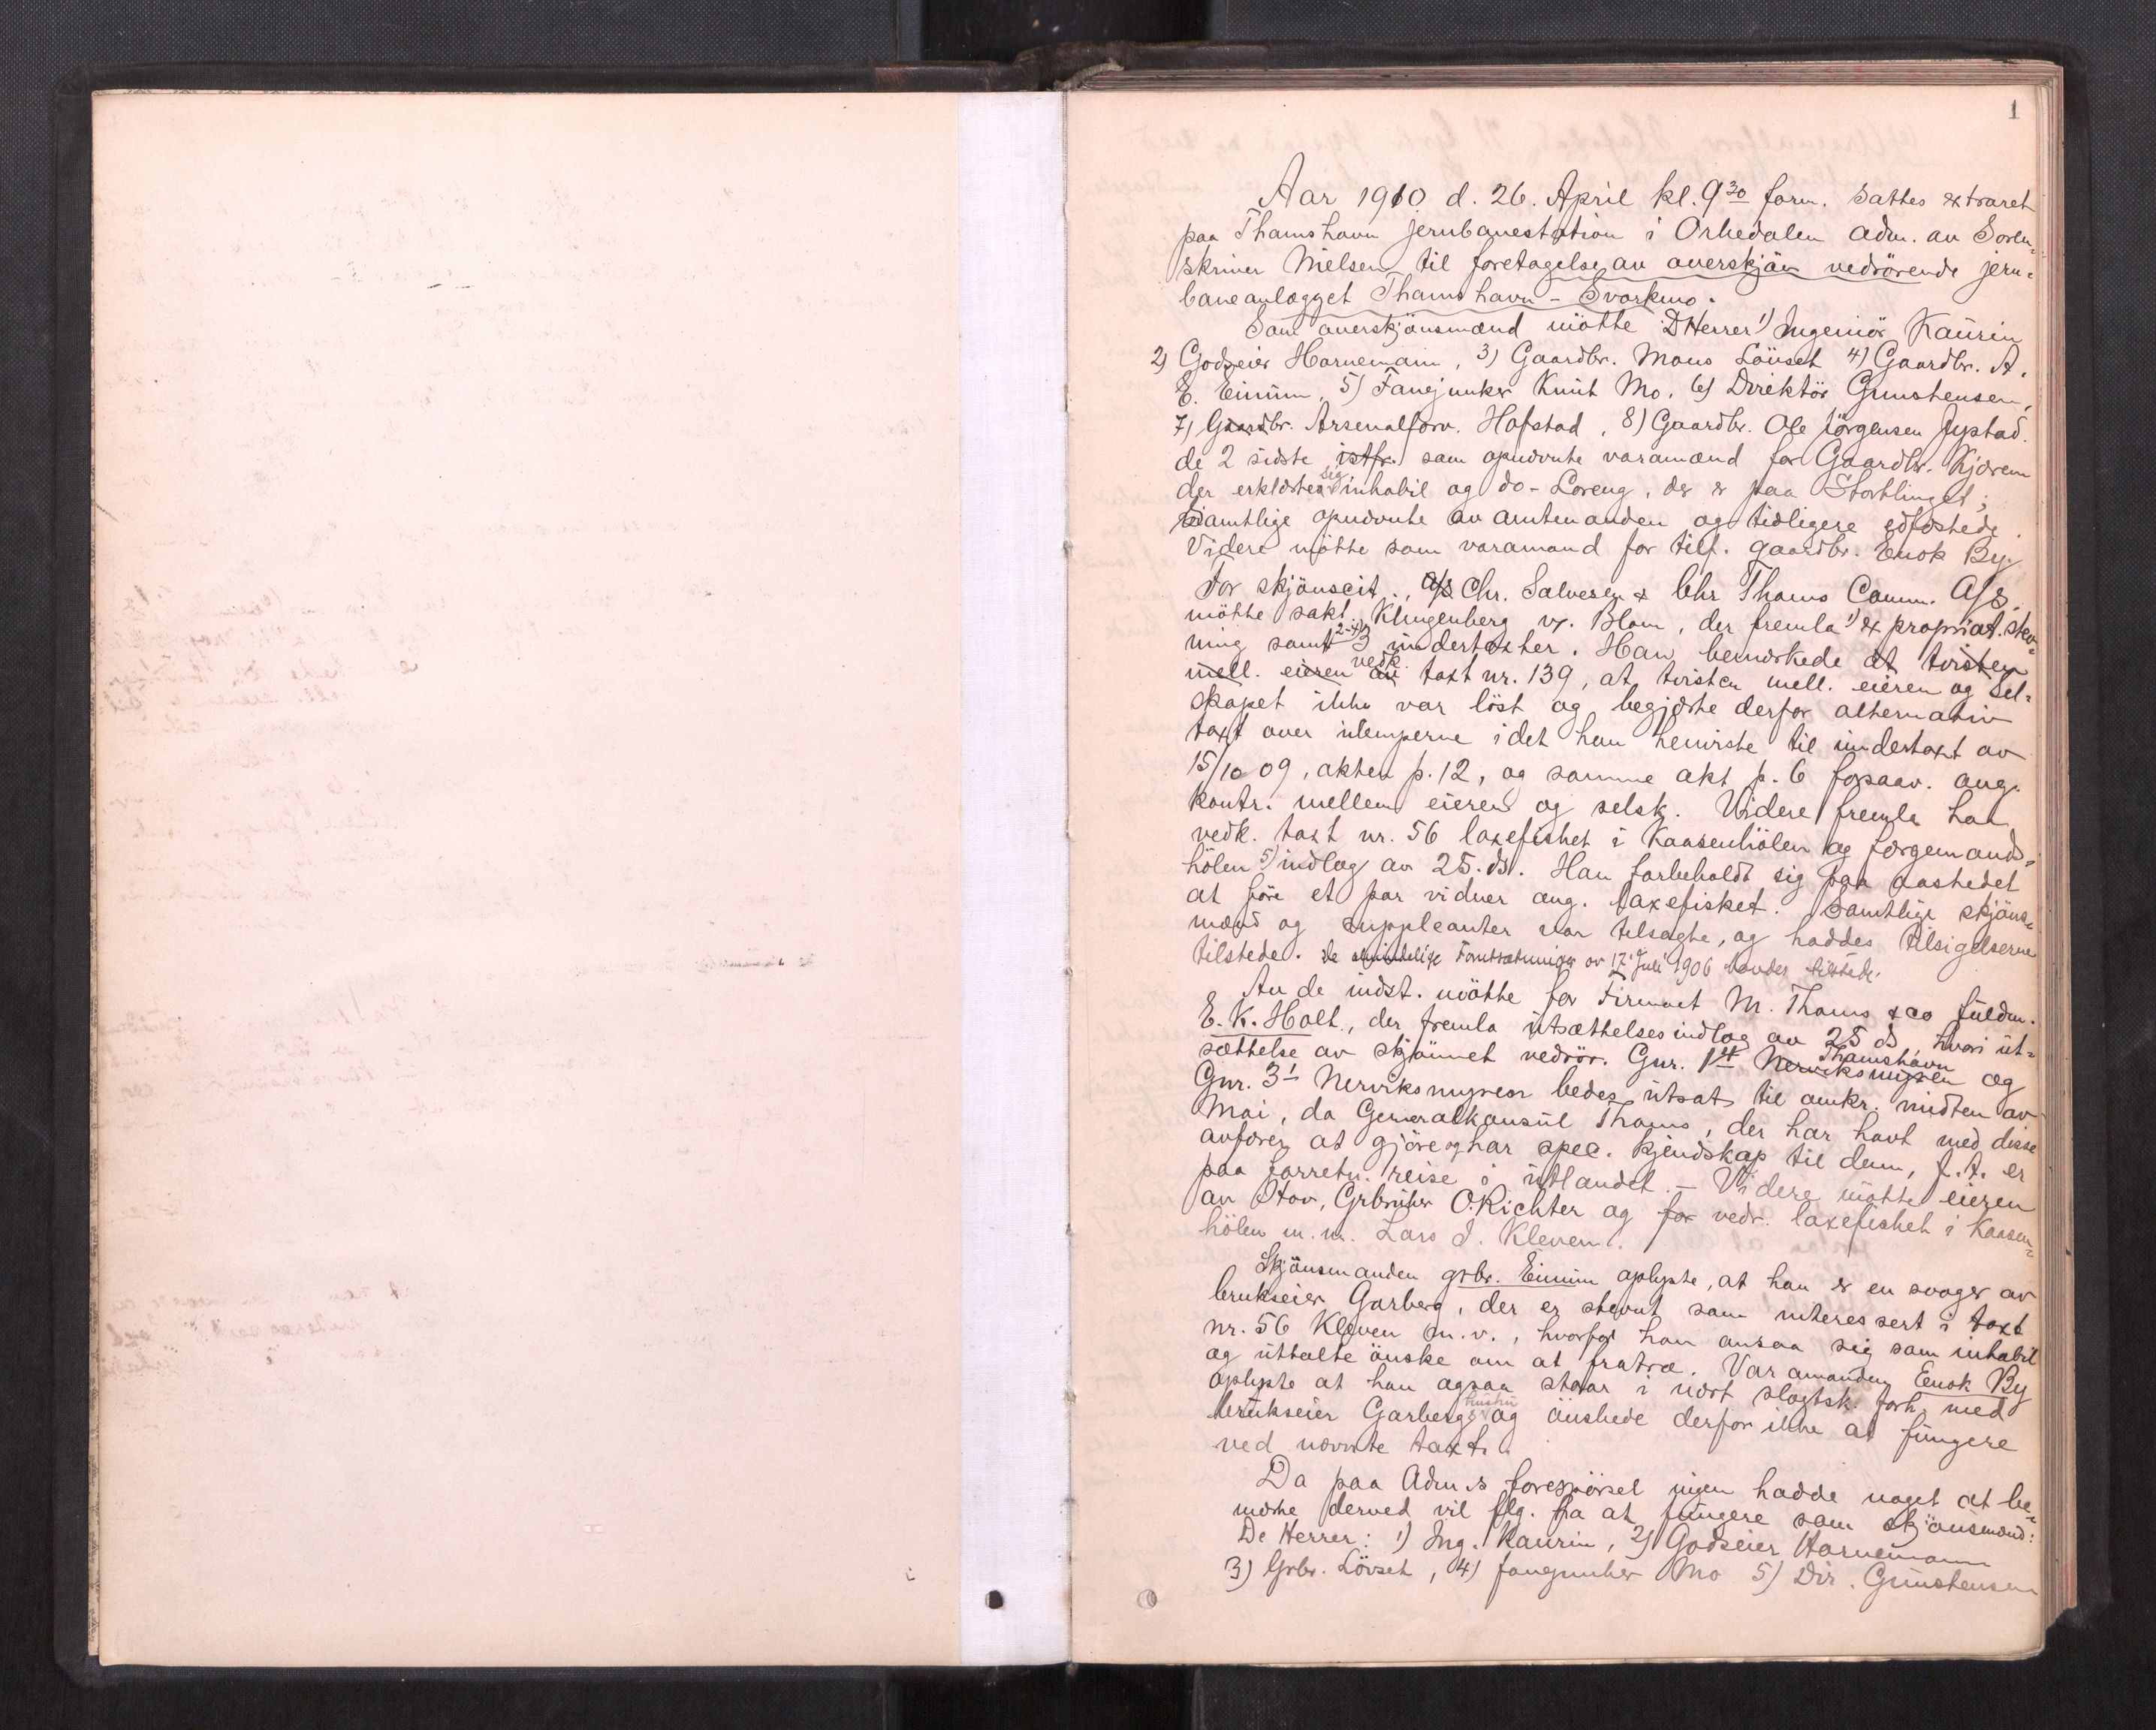 1
Aar 1910 d. 26. April kl. 9 30 form. sattes extraret
paa Thamshavn jernbanestation i Orkedalen adm. av Soren-
skriver Nielsen til foretagelse av overskjön vedrörende jern-
baneanlægget Thamshavn - Svorkmo.
Som overskjönsmænd mötte DHerrer 1) Ingeniör Kaurin
2) Godseier Hornemann, 3) Gaardbr. Mons Lövset 4) Gaardbr. A.
E. Einum, 5) Fanejunker Knut Mo, 6) Direktör Gunstensen,
7) Gaardbr. Arsenalforv. Hofstad, 8) Gaardbr. Ole Jörgensen Jystad.
de 2 sidste istf. som opnævnte varamænd for Gaardbr. Kjærem
der erklærtes sig inhabil og do - Loreng, der er paa Storthinget;
samtlige opnævnte av amtmanden og tidligere edfæstede.
Videre mötte som varamand for tilf. gaardbr. Enok By.
For skjönseit., A/S Chr. Salvesen & Chr Thams Comm. A/S.
mötte sakf. Klingenberg v. Blom, der fremla 1) expropriat. stev-
ning samt 2-4) 3 undertakster. Han bemærkede at tvisten
mell. eieren av vedk. taxt nr. 139, at tvisten mell. eieren og sel-
skapet ikke var löst og begjærte derfor alternativ
taxt over ulemperne idet han henviste til undertaxt av
15/10 09, akten p. 12, og samme akt p. 6 forsaav. ang.
kontr. mellem eieren og selsk. Videre fremla han
vedk. taxt nr. 56 laxefisket i Kaasenhölen og færgemands-
hölen 5) indlæg av 25. ds. Han forbeholdt sig paa aastedet
at före et par vidner ang. laxefisket. Samtlige skjöns-
mænd og suppleanter var tilsagte, og haddes tilsigelserne
tilstede. De almindelige Forutsætninger av 17. Juli 1906 havdes tilstede.
Av de indst. mötte for Firmaet M. Thams & Co fuldm.
E. K. Holt, der fremla utsættelsesindlæg av 25 ds, hvori ut-
sættelse av skjönnet vedrör. Gnr. 1 Nerviksmyren Thamshavn og
Gnr. 3 1 Nerviksmyren bedes utsat til omkr. midten av
Mai, da Generalkonsul Thams, der har havt med disse
avfærer at gjöre og har spec. kjendskap til dem, f.t. er
paa forretn. reise i utlandet. - Videre mötte eieren
av Hov, Grbruker O. Richter og for vedr. laxefisket i Kaasen-
hölen m. m. Lars J. Kleven.
Skjönsmanden grbr. Einum oplyste, at han er en svoger av
brukseier Garberg, der er stevnt som interessert i taxt
nr. 56 Kleven m. v., hvorfor han ansaa sig som inhabil
og uttalte önske om at fratræ. Varamanden Enok By
oplyste at han ogsaa staar i nært slegtsk. forh. med
brukseier Garbergs hustru og önskede derfor ikke at fungere
ved nævnte taxt.
Da paa Adm.s forespörsel ingen hadde noget at be-
mærke derved vil flg. fra at fungere som skjönsmænd:
De Herrer: 1) Ing. Kaurin, 2) Godseier Hornemann
3) Grbr. Lövset, 4) fanejunker Mo 5) Dir. Gunstensen